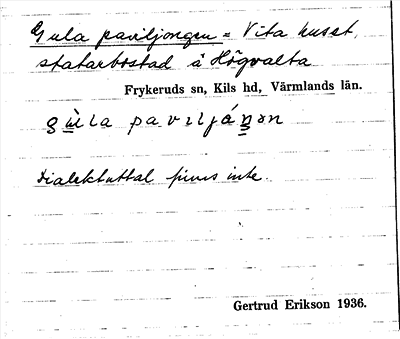 Gula paviljongen = Vita huset,
statarbostad å Högvalta
Frykeruds sn, Kils hd, Värmlands län.
gùla paviljáŋən
Dialektuttal finns inte.
Gertrud Erikson 1936.